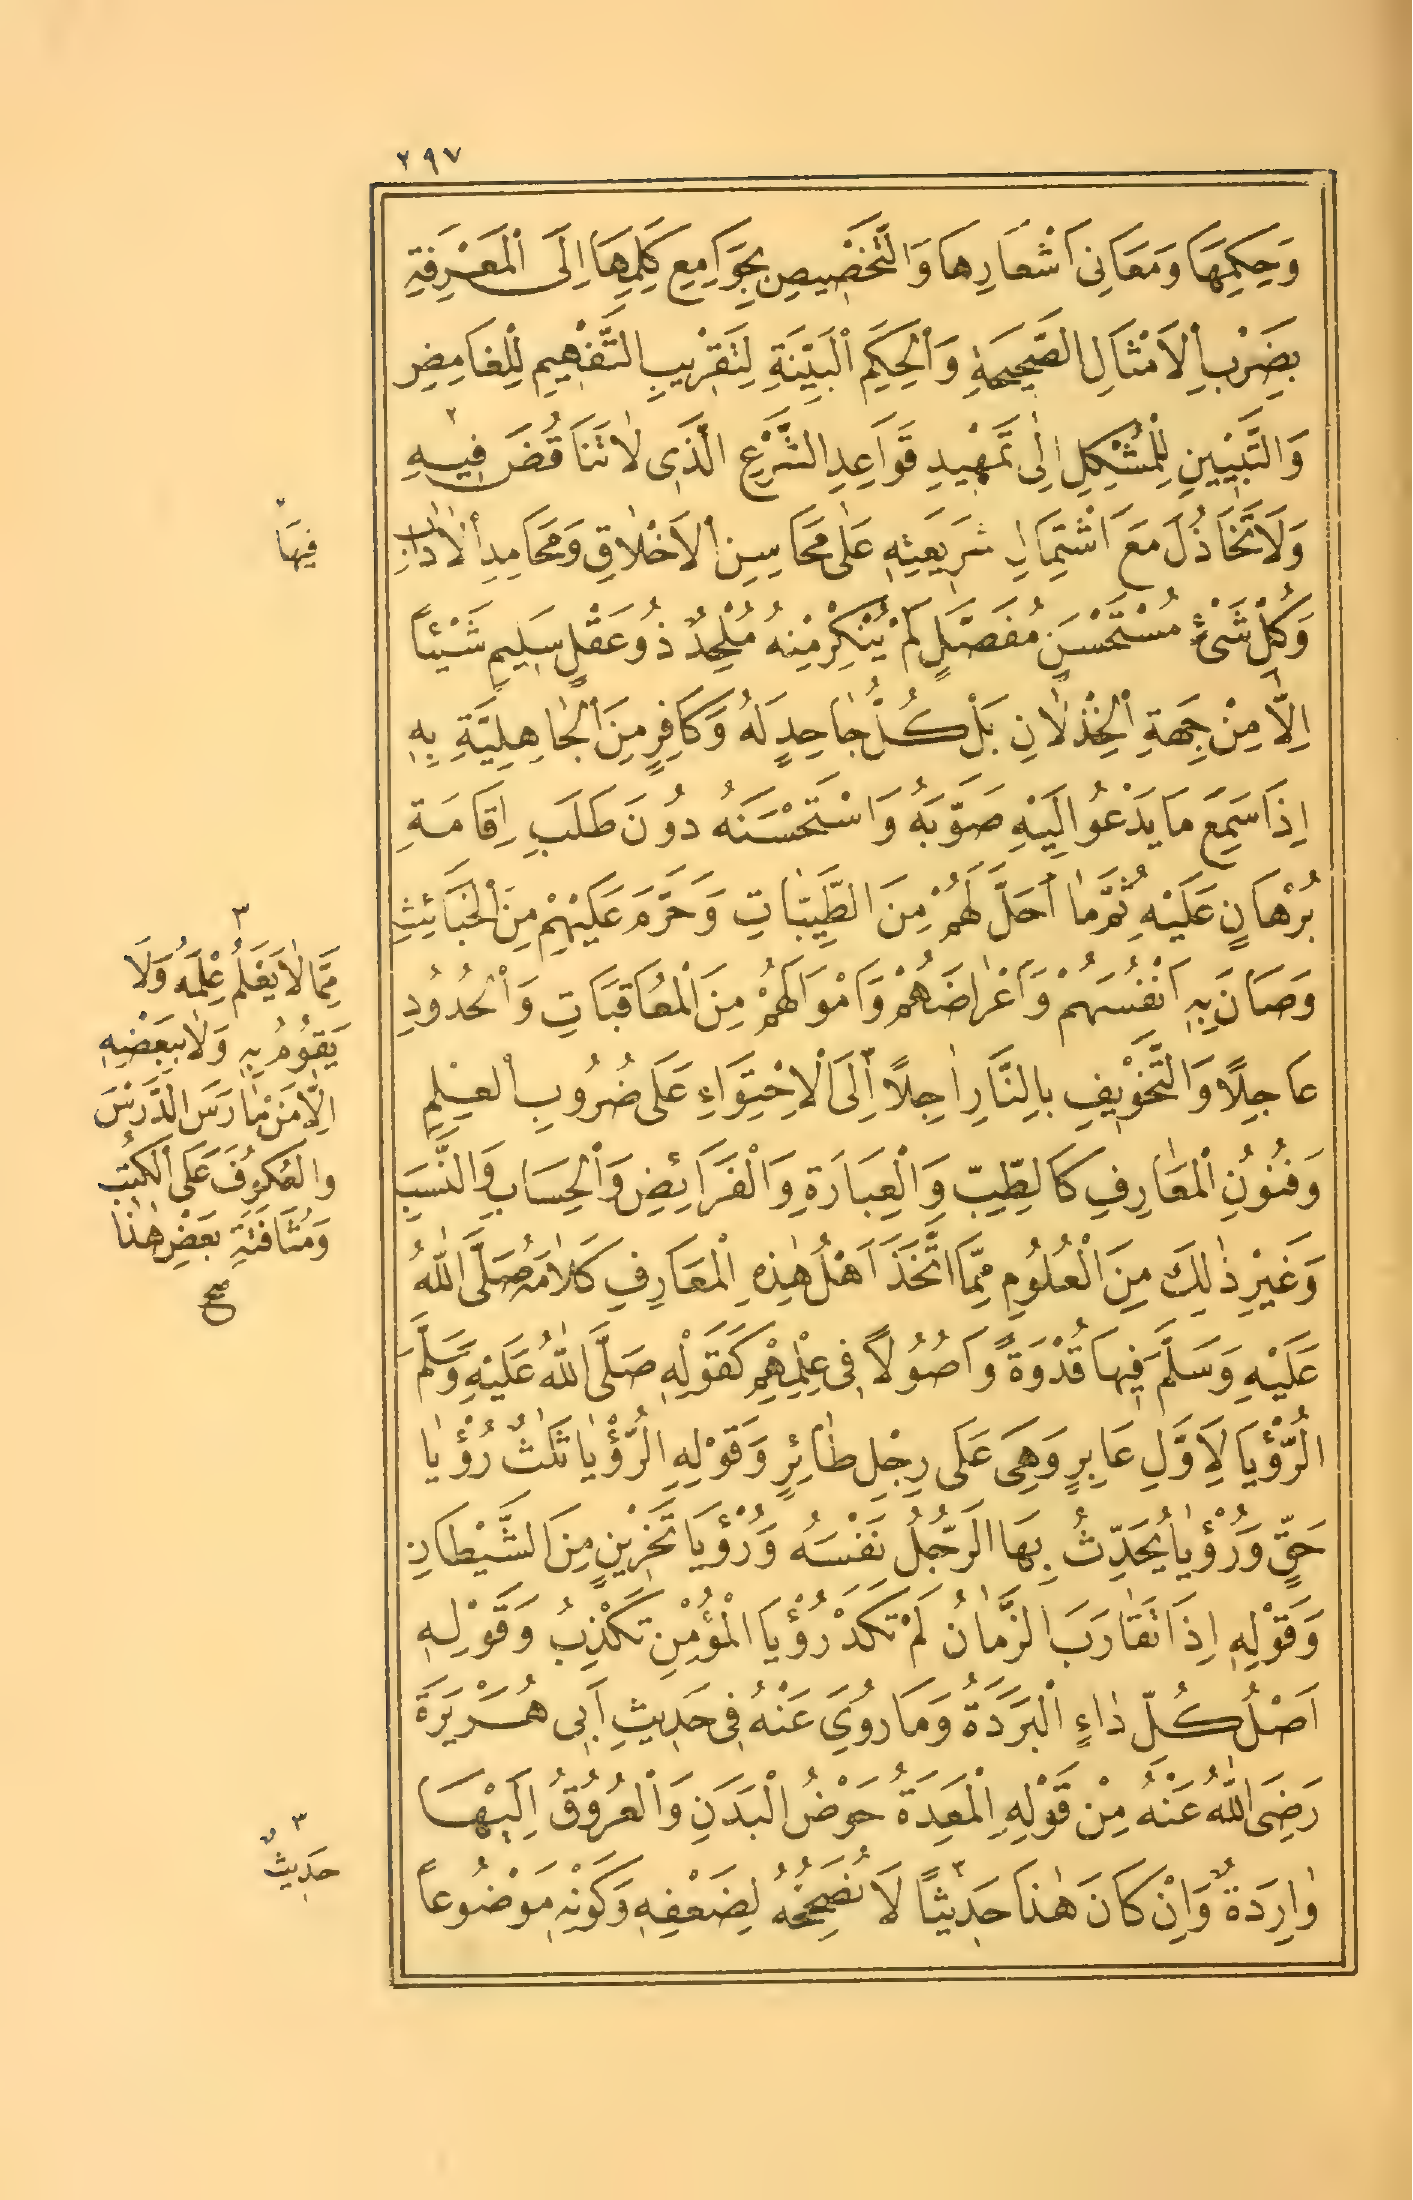 ٢٩٧
وَحِكَمِهَا وَمَعَانِى اَشْعَارِهَا وَالتَّخْصِيصِ بِجَوَامِعِ كَلِمِهَا اِلَى الْمَعْرِفَةِ
بِضَرْبِ الْاَمْثَالِ الصَّحِيحَةِ وَالْحِكَمِ الْبَيِّنَةِ لِتَقْرِيبِ التَّفْهِيمِ لِلْغَامِضِ
وَالتَّبْيِينِ لِلْمُشْكِلِ اِلٰى تَمْهِيدِ قَوَاعِدِ الشَّرْعِ الَّذِى لَا تَنَاقُضَ فِيهِ ٢
وَلَا تَخَاذُلَ مَعَ اشْتِمَالِ شَرِيعَتِهِ عَلٰى مَحَاسِنِ الْاَخْلَاقِ وَمَحَامِدِ الْاٰدَابِ
وَكُلِّ شَىْءٍ مُسْتَحْسَنٍ مُفَصَّلٍ لَمْ يُنْكِرْ مِنْهُ مُلْحِدٌ ذُو عَقْلٍ سَلِيمٍ شَيْئًا
اِلَّا مِنْ جِهَةِ الْخِذْلَانِ بَلْ كُلُّ جَاحِدٍ لَهُ وَكَافِرٍ مِنَ الْجَاهِلِيَّةِ بِهِ
اِذَا سَمِعَ مَا يَدْعُو اِلَيْهِ صَوَّبَهُ وَاسْتَحْسَنَهُ دُونَ طَلَبِ اِقَامَةِ
بُرْهَانٍ عَلَيْهِ ثُمَّ مَا اَحَلَّ لَهُمْ مِنَ الطَّيِّبَاتِ وَحَرَّمَ عَلَيْهِمْ مِنَ الْخَبَائِثِ
وَصَانَ بِهِ اَنْفُسَهُمْ وَاَعْرَاضَهُمْ وَاَمْوَالَهُمْ مِنَ الْمُعَاقَبَاتِ وَالْحُدُودِ
عَاجِلًا وَالتَّخْوِيفِ بِالنَّارِ اٰجِلًا ٣ اِلَى الْاِحْتِوَاءِ عَلَى ضُرُوبِ الْعِلْمِ
وَفُنُونِ الْمَعَارِفِ كَالطِّبِّ وَالْعِبَارَةِ وَالْفَرَائِضِ وَالْحِسَابِ وَالنَّسَبِ
وَغَيْرِ ذٰلِكَ مِنَ الْعُلُومِ مِمَّا اتَّخَذَ اَهْلُ هٰذِهِ الْمَعَارِفِ كَلَامَهُ صَلَّى اللّٰهُ
عَلَيْهِ وَسَلَّمَ فِيهَا قُدْوَةً وَاُصُولًا فِى عِلْمِهِمْ كَقَوْلِهِ صَلَّى اللّٰهُ عَلَيْهِ وَسَلَّمَ
الرُّؤْيَا لِاَوَّلِ عَابِرٍ وَهِىَ عَلَى رِجْلِ طَائِرٍ وَقَوْلِهِ الرُّؤْيَا ثَلٰثٌ رُؤْيَا
حَقٍّ وَرُؤْيَا يُحَدِّثُ بِهَا الرَّجُلُ نَفْسَهُ وَرُؤْيَا تَحْزِينٍ مِنَ الشَّيْطَانِ
وَقَوْلِهِ اِذَا تَقَارَبَ الزَّمَانُ لَمْ تَكَدْ رُؤْيَا الْمُؤْمِنِ تَكْذِبُ وَقَوْلِهِ
اَصْلُ كُلِّ دَاءٍ الْبَرَدَةُ وَمَا رُوِىَ عَنْهُ فِى حَدِيثِ اَبِى هُرَيْرَةَ
رَضِىَ اللّٰهُ عَنْهُ مِنْ قَوْلِهِ الْمَعِدَةُ حَوْضُ الْبَدَنِ وَالْعُرُوقُ اِلَيْهَا
وَارِدَةٌ وَاِنْ كَانَ هٰذَا حَدِيثًا ٣ لَا نُصَحِّحُهُ لِضَعْفِهِ وَكَوْنِهِ مَوْضُوعًا
فِيهَا
٣
مِمَّا لَا يَعْلَمُ عِلْمَهُ وَلَا
يَقُومُ بِهِ وَلَا بِبَعْضِهِ
اِلَّا مَنْ مَارَسَ الدَّرْسَ
وَالْعُكُوفَ عَلَى الْكُتُبِ
وَمُثَافَنَةِ بَعْضِ هٰذَا
صح
٣
حَدِيثٌ